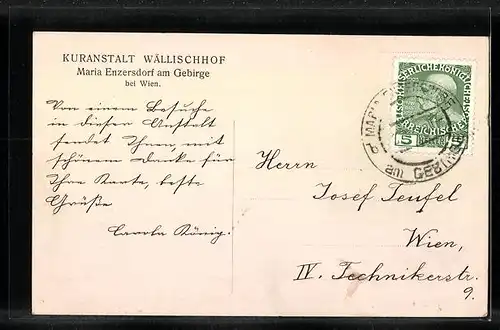 KURANSTALT WÄLLISCHHOF
Maria Enzersdorf am Gebirge
bei Wien.
Von einem Besuche
in dieser Anstalt
sendet Ihnen, mit
schönem Danke für
Ihre Karte, beste
Grüße
Carola König.
Herrn
Josef Teufel
Wien,
IV. Technikerstr.
9.
5
MARIA ENZERSDORF
am GEBIRGE